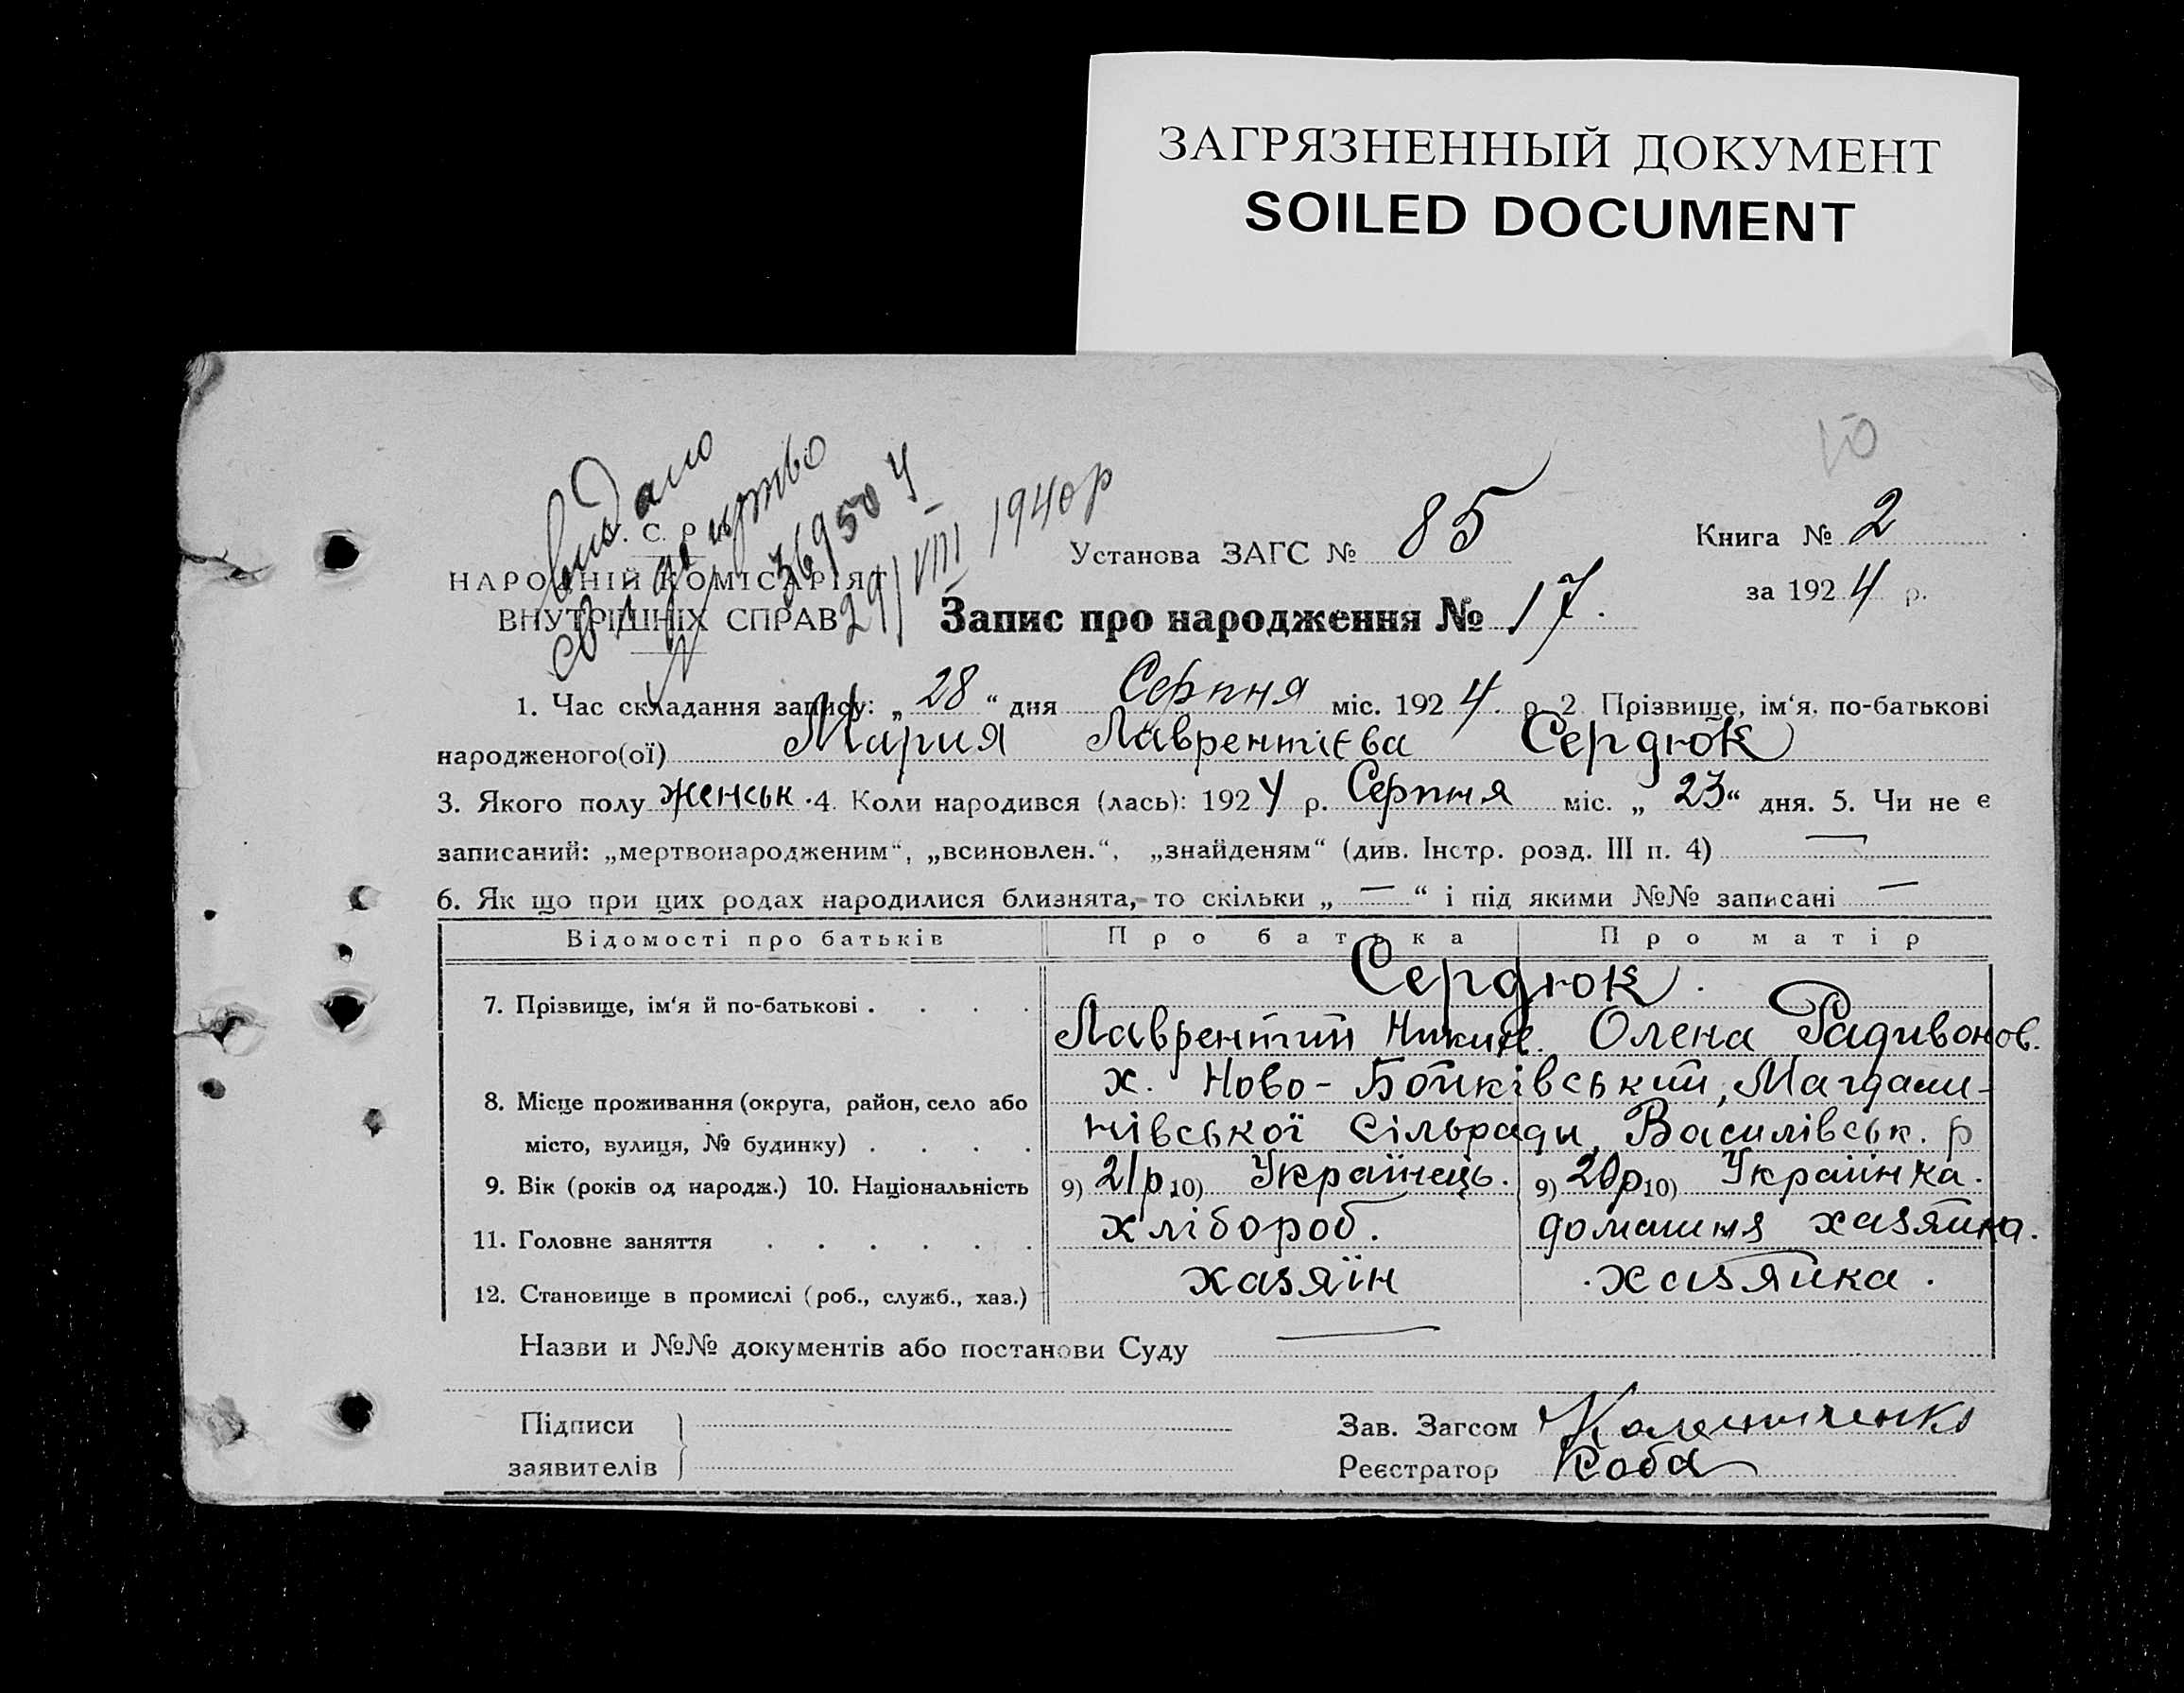 ЗАГРЯЗНЕННЫЙ ДОКУМЕНТ
SOILED DOCUMENT
10
видано
свідоцтво
№ 369504
29/VIII 1940р
С. Р.
НАРОДНІЙ КОМІСАРІЯТ
ВНУТРІШНІХ СПРАВ
Установа ЗАГС № 85
Книга № 2
за 1924 р.
Запис про народження № 17.
1. Час складання запису: „ 28 “ дня Серпня міс. 1924. р 2 Прізвище, ім‘я, по-батькові
народженого(ої) Мария Лаврентієва Сердюк
3. Якого полу женськ. 4. Коли народився (лась): 1924 р. Серпня міс. „ 23 “ дня. 5. Чи не є
записаний: „мертвонародженим“, „всиновлен.“, „знайденям“ (див. Інстр. розд. III п. 4) —
6. Як що при цих родах народилися близнята, то скільки „ — “ і під якими №№ записані —
Відомості про батьків Про батька Про матір
Сердюк.
7. Прізвище, ім‘я й по-батькові . . . .
Лаврентий Никиф. Олена Радивонов.
х. Ново-Бойківський, Магдали-
8. Місце проживання (округа, район, село або
місто, вулиця, № будинку) . . . . нівської сільради, Василівськ. р
9. Вік (років од народж.) 10. Національність 9) 21р 10) Українець. 9) 20р 10) Украінка.
11. Головне заняття . . . . . . хлібороб. домашня хазяйка.
12. Становище в промислі (роб., служб., хаз.) хазяїн хазяйка.
Назви и №№ документів або постанови Суду —
Підписи
заявителів
Зав. Загсом
Реєстратор Коба